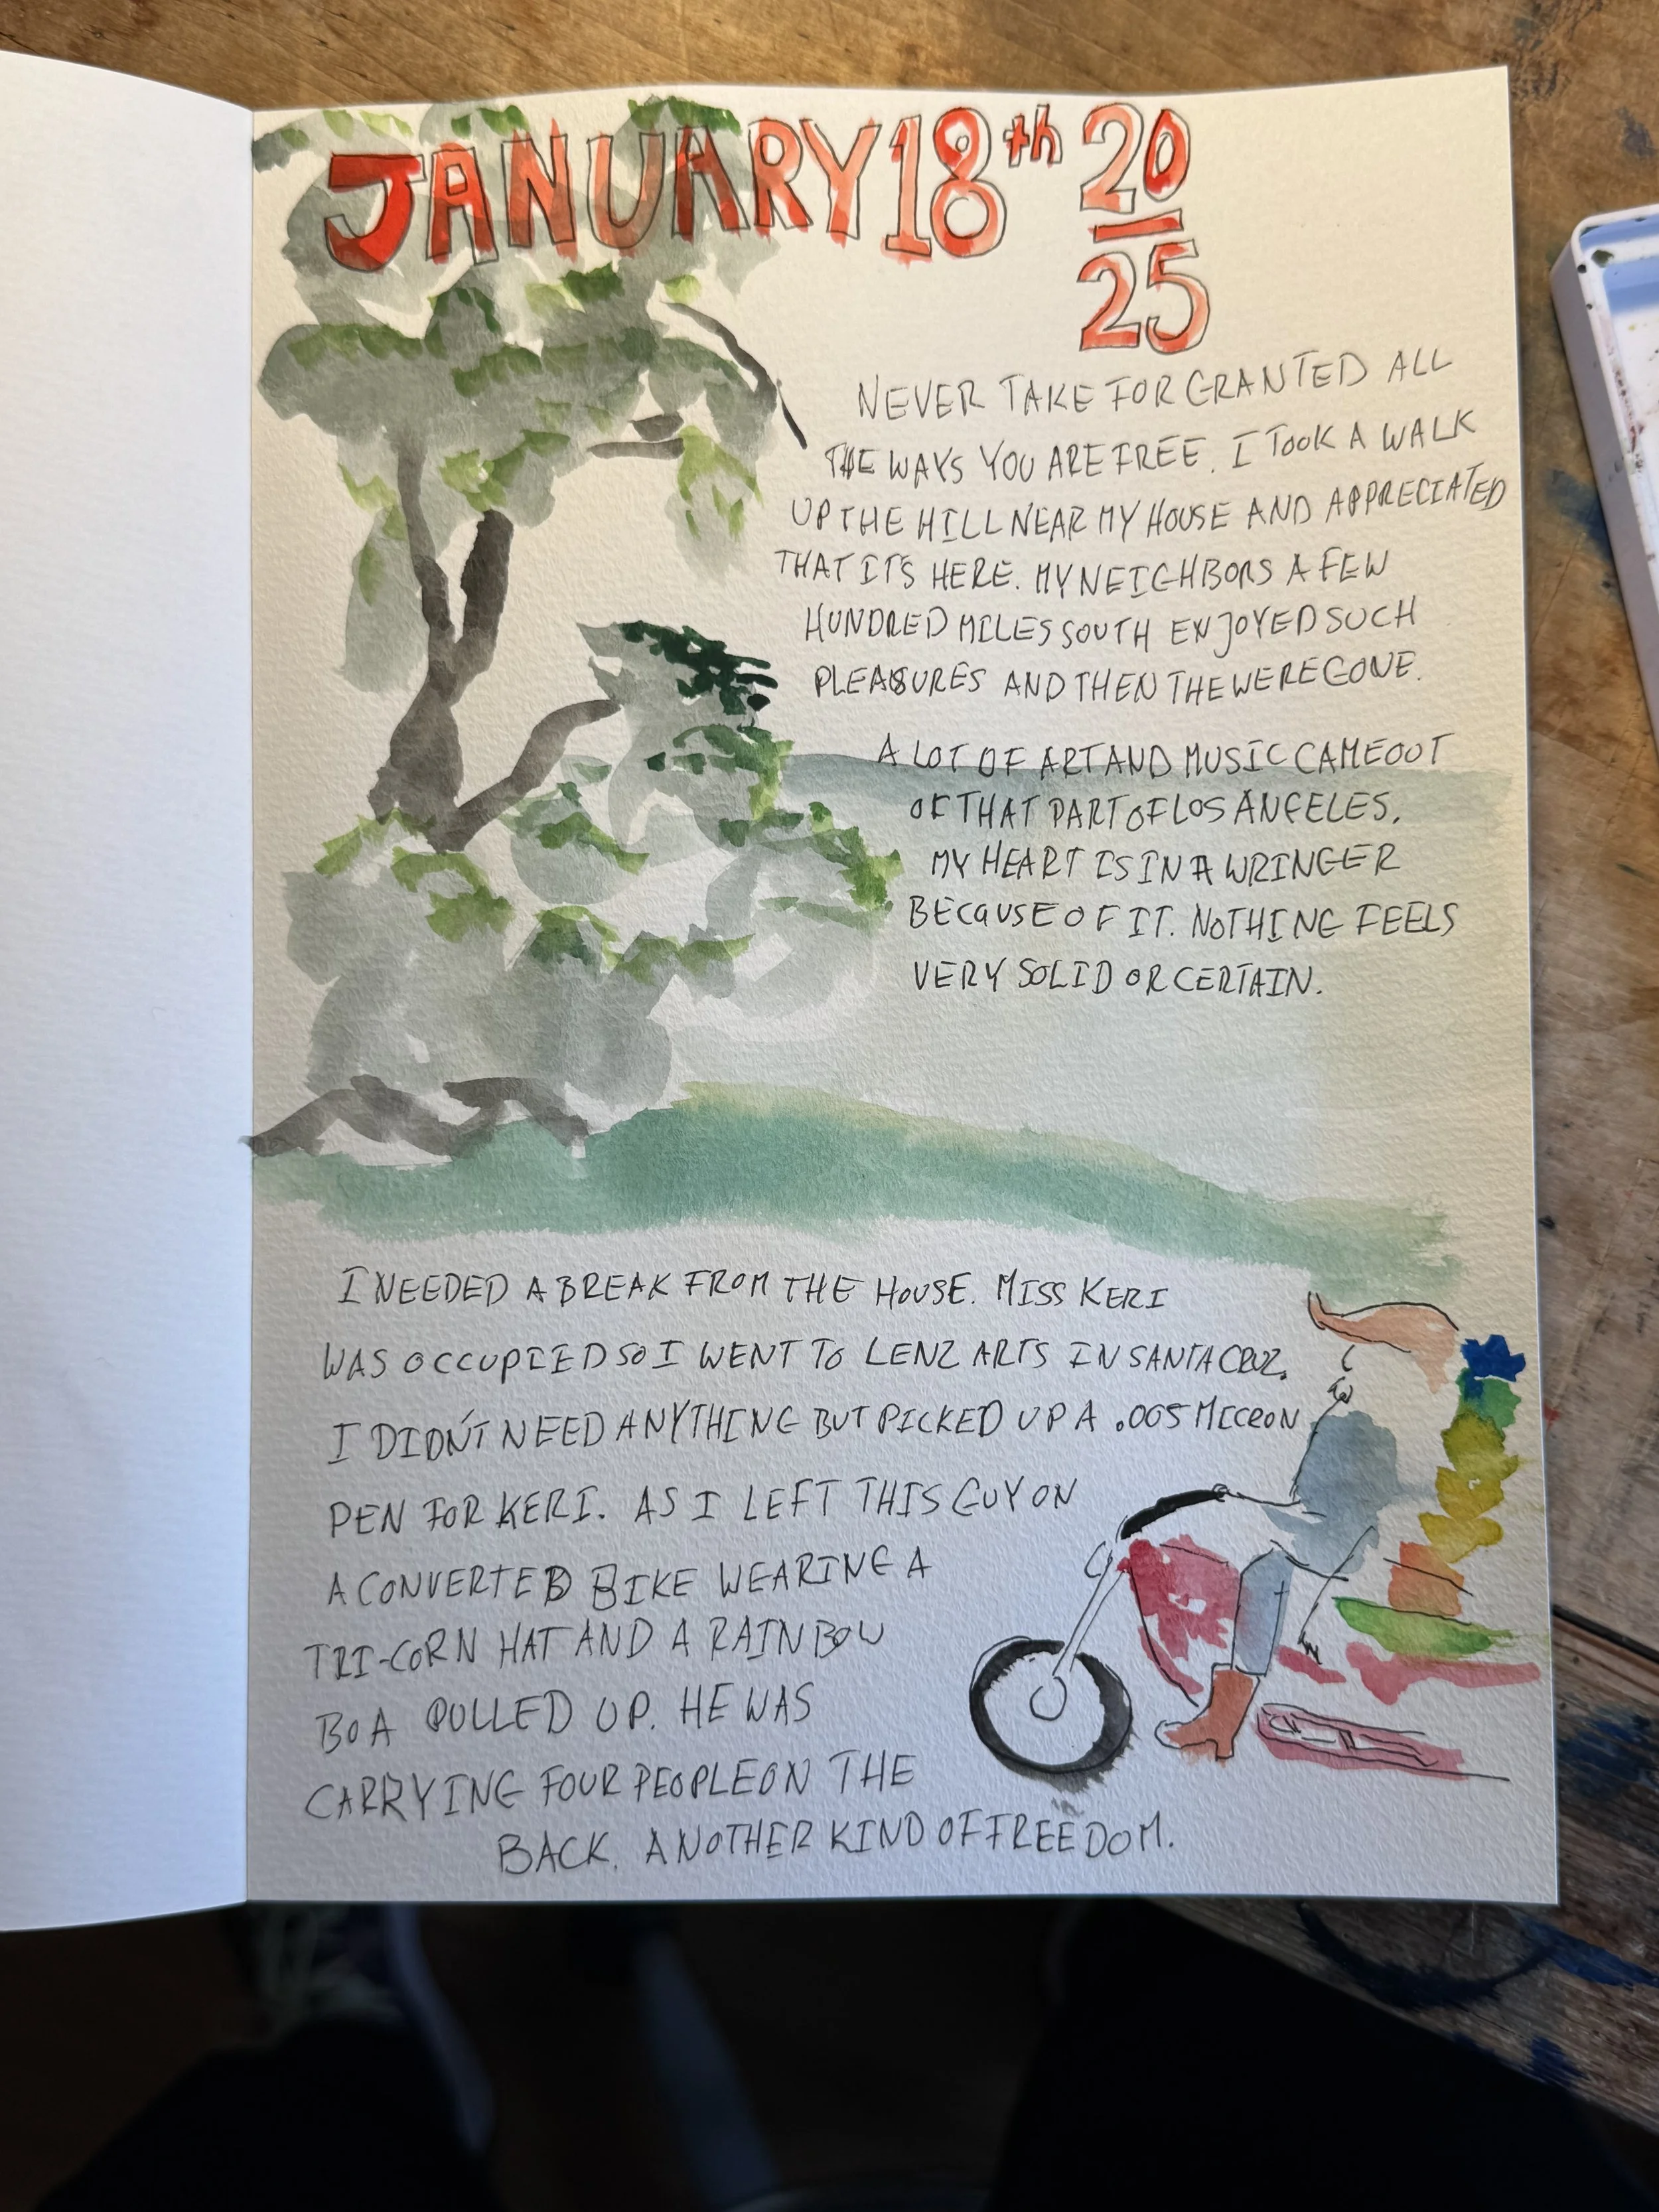 JANUARY 18th 20
25
NEVER TAKE FOR GRANTED ALL
THE WAYS YOU ARE FREE. I TOOK A WALK
UP THE HILL NEAR MY HOUSE AND APPRECIATED
THAT IT'S HERE. MY NEIGHBORS A FEW
HUNDRED MILES SOUTH ENJOYED SUCH
PLEASURES AND THEN THE WERE GONE.
A LOT OF ART AND MUSIC CAME OUT
OF THAT PART OF LOS ANGELES.
MY HEART IS IN A WRINGER
BECAUSE OF IT. NOTHING FEELS
VERY SOLID OR CERTAIN.
I NEEDED A BREAK FROM THE HOUSE. MISS KERI
WAS OCCUPIED SO I WENT TO LENZ ARTS IN SANTA CRUZ.
I DIDN'T NEED ANYTHING BUT PICKED UP A .005 MICRON
PEN FOR KERI. AS I LEFT THIS GUY ON
A CONVERTED BIKE WEARING A
TRI-CORN HAT AND A RAINBOW
BOA PULLED UP. HE WAS
CARRYING FOUR PEOPLE ON THE
BACK. ANOTHER KIND OF FREEDOM.